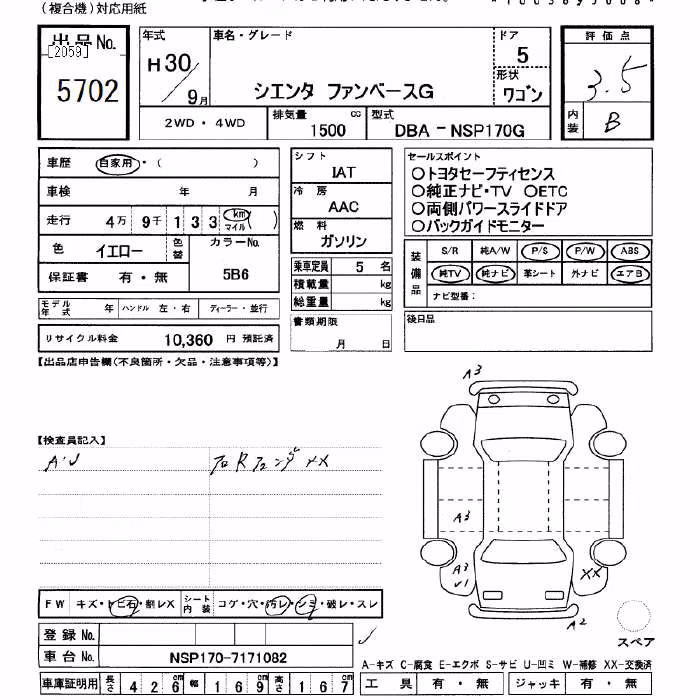 (複合機)対応用紙
出品No.
[2059]
5702
年式
H30/9月
車名・グレード
シエンタ ファンベースG
ドア
5
形状
ワゴン
2WD・4WD
排気量 cc
1500
型式
DBA-NSP170G
評価点
3.5
内装
B
車歴 自家用・( )
車検 年 月
走行 4万 9千 1 3 3 km マイル ( )
色 イエロー 色替 カラーNo.
5B6
保証書 有・無
モデル年式 年 ハンドル 左・右 ディーラー・並行
リサイクル料金 10,360 円 預託済
シフト
IAT
冷房
AAC
燃料
ガソリン
乗車定員 5 名
積載量 kg
総重量 kg
書類期限
月 日
セールスポイント
○トヨタセーフティセンス
○純正ナビ・TV ○ETC
○両側パワースライドドア
○バックガイドモニター
装備品
S/R 純A/W P/S P/W ABS
純TV 純ナビ 革シート 外ナビ エアB
ナビ型番:
後日品
【出品店申告欄(不良箇所・欠品・注意事項等)】
【検査員記入】
A・U
フロRフェンダ XX
A3
A3
A3
U1
XX
A2
スペア
FW キズ・トビ石・割レX シート内装 コゲ・穴・汚レ・シミ・破レ・スレ
登録No.
車台No. NSP170-7171082
車庫証明用 長さ 4 2 6 cm 幅 1 6 9 cm 高さ 1 6 7 cm
A-キズ C-腐食 E-エクボ S-サビ U-凹ミ W-補修 XX-交換済
工具 有・無 ジャッキ 有・無